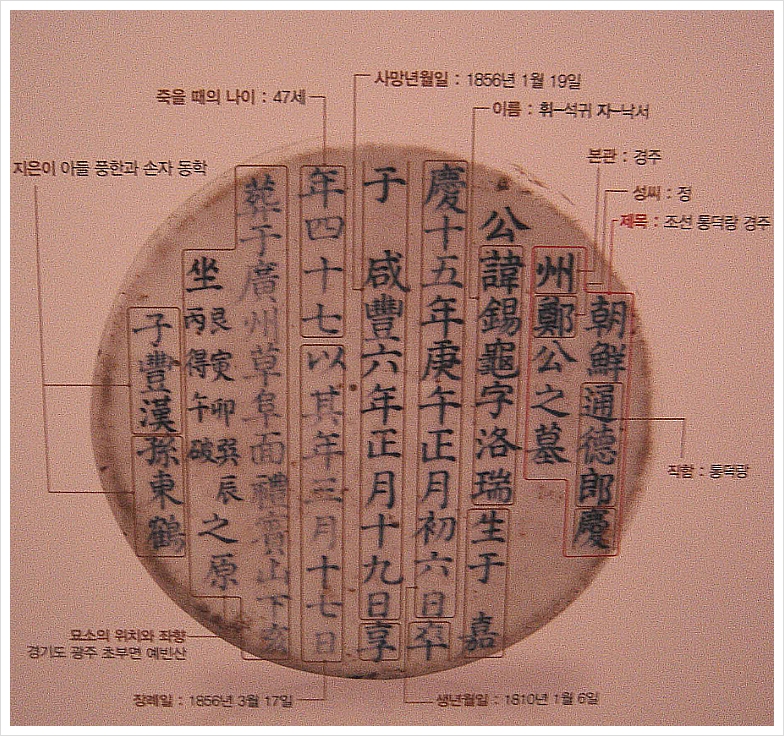 사망년월일 : 1856년 1월 19일
죽을 때의 나이 : 47세
이름 : 휘-석귀 자-낙서
본관 : 경주
지은이 아들 풍한과 손자 동학
성씨 : 정
제목 : 조선 통덕랑 경주
朝鮮通德郎慶
州鄭公之墓
公諱錫龜字洛瑞生于 嘉
慶十五年庚午正月初六日卒
于 咸豐六年正月十九日享
年四十七以其年三月十七日
葬于廣州草阜面禮賓山下亥
坐
艮寅卯巽辰
丙得午破
之原
子豐漢孫東鶴
직함 : 통덕랑
묘소의 위치와 좌향
경기도 광주 초부면 예빈산
장례일 : 1856년 3월 17일
생년월일 : 1810년 1월 6일